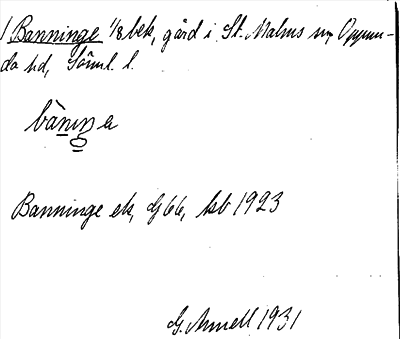 1 Banninge 1/8 bek, gård i St. Malms sn, Oppun-
da hd, Söml. l.
Banninge ek, G66, kb 1923
G. Annell 1931